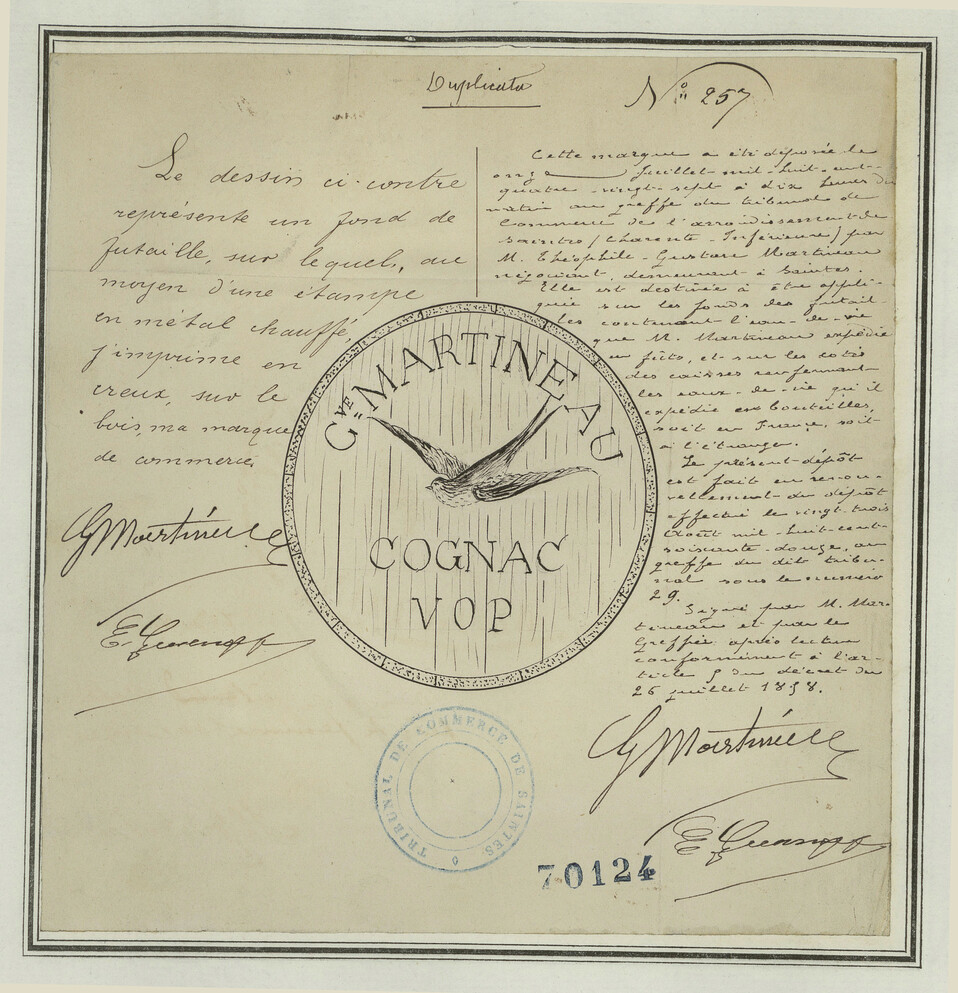 Duplicata
N° 257
Le dessin ci-contre
représente un fond de
futaille, sur lequel, au
moyen d'une étampe
en métal chauffé,
j'imprime en
creux, sur le
bois, ma marque
de commerce
G Martineau
Cette marque a été déposée le
onze juillet mil-huit-cent-
quatre-vingt-sept à dix heures du
matin au greffe du tribunal de
Commerce de l'arrondissement de
Saintes (Charente-Inférieure) par
M. Théophile-Gustave Martineau
négociant, demeurant à Saintes.
Elle est destinée à être appli-
quée sur les fonds des futail-
les contenant l'eau-de-vie
que M. Martineau expédie
en fûts, et sur les cotés
des caisses renfermant
les eaux-de-vie qu'il
expédie en bouteilles,
soit en France, soit
à l'étranger.
Le présent dépôt
est fait en renou-
vellement du dépôt
effectué le vingt-trois
Août mil-huit-cent-
soixante-douze, au
greffe du dit tribu-
nal sous le numéro
29.
Signé par M. Mar-
tineau et par le
Greffier après lecture
conformément à l'ar-
ticle 5 du décret du
26 juillet 1858.
G Martineau
GVE MARTINEAU
COGNAC
VOP
TRIBUNAL DE COMMERCE DE SAINTES
70124